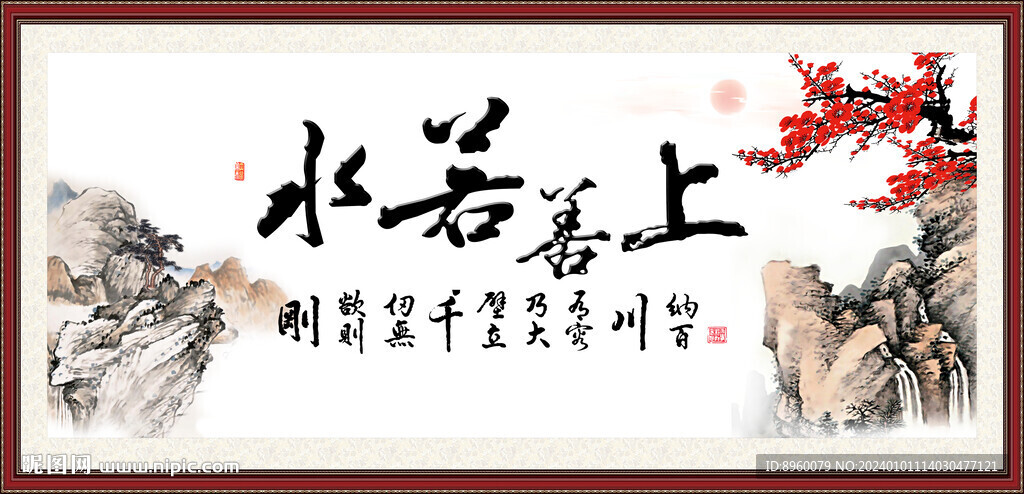 上善若水
納百川有容乃大壁立千仞無欲則剛
昵图网 www.nipic.com
ID:8960079 NO:20240101114030477121